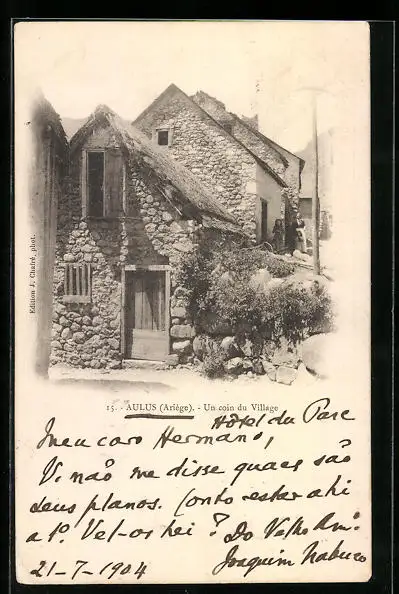 Edition J. Chafré, phot.
15. - AULUS (Ariège). - Un coin du Village
Hotel du Parc
Meu caro Hermano,
V. não me disse quaes são
seus planos. Conto estar ahi
a 1º. Vel-os hei? Do Velho Amº.
21-7-1904 Joaquim Nabuco